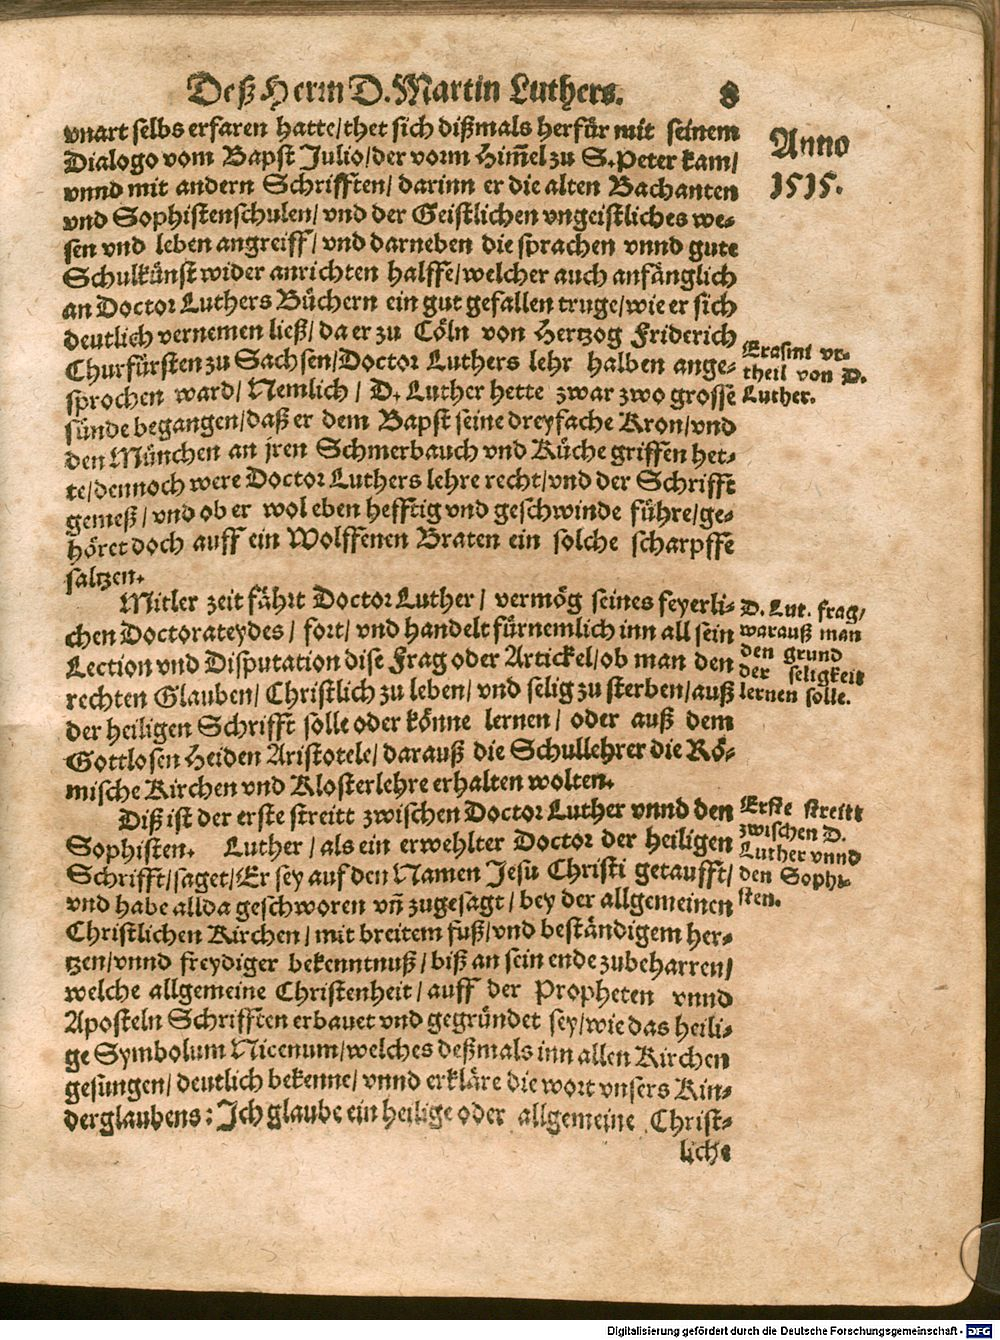 Deß Herrn D. Martin Luthers. 8
vnart selbs erfaren hatte/thet sich dißmals herfür mit seinem
Dialogo vom Bapst Julio/der vorm Him̃el zu S. Peter kam/
vnnd mit andern Schrifften/ darinn er die alten Bachanten
vnd Sophistenschulen/ vnd der Geistlichen vngeistliches we-
sen vnd leben angreiff/ vnd darneben die sprachen vnnd gute
Schulkünst wider anrichten halffe/welcher auch anfänglich
an Doctor Luthers Büchern ein gut gefallen truge/wie er sich
deutlich vernemen ließ/ da er zu Cöln von Hertzog Friderich
Churfürsten zu Sachsen/Doctor Luthers lehr halben ange-
sprochen ward/ Nemlich / D. Luther hette zwar zwo grosse
sünde begangen/daß er dem Bapst seine dreyfache Kron/vnd
den München an jren Schmerbauch vnd Küche griffen het-
te/dennoch were Doctor Luthers lehre recht/vnd der Schrifft
gemeß/vnd ob er wol eben hefftig vnd geschwinde führe/ge-
höret doch auff ein Wolffenen Braten ein solche scharpffe
saltzen.
Mitler zeit fährt Doctor Luther/ vermög seines feyerli-
chen Doctorateydes/ fort/ vnd handelt fürnemlich inn all sein
Lection vnd Disputation dise Frag oder Artickel/ob man den
rechten Glauben/ Christlich zu leben/ vnd selig zu sterben/auß
der heiligen Schrifft solle oder könne lernen/ oder auß dem
Gottlosen Heiden Aristotele/ darauß die Schullehrer die Rö-
mische Kirchen vnd Klosterlehre erhalten wolten.
Diß ist der erste streitt zwischen Doctor Luther vnnd den
Sophisten. Luther/ als ein erwehlter Doctor der heiligen
Schrifft/saget/Er sey auf den Namen Jesu Christi getaufft/
vnd habe allda geschworen vñ zugesagt/ bey der allgemeinen
Christlichen Kirchen/ mit breitem fuß/vnd beständigem her-
tzen/vnnd freydiger bekenntnuß/ biß an sein ende zubeharren/
welche allgemeine Christenheit/ auff der Propheten vnnd
Aposteln Schrifften erbauet vnd gegründet sey/wie das heili-
ge Symbolum Nicenum/welches deßmals inn allen Kirchen
gesungen/ deutlich bekenne/ vnnd erkläre die wort vnsers Kin-
derglaubens: Ich glaube ein heilige oder allgemeine Christ-
liche
Anno
1515.
Erasmi vr-
theil von D.
Luther.
D. Lut. frag/
warauß man
den grund
der seligkeit
lernen solle.
Erste streitt
zwischen D.
Luther vnnd
den Sophi-
sten.
Digitalisierung gefördert durch die Deutsche Forschungsgemeinschaft - DFG